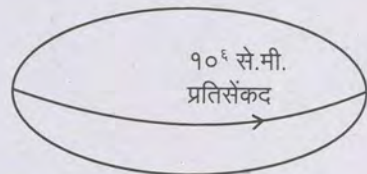 १०^६ से.मी.
प्रतिसेंकद